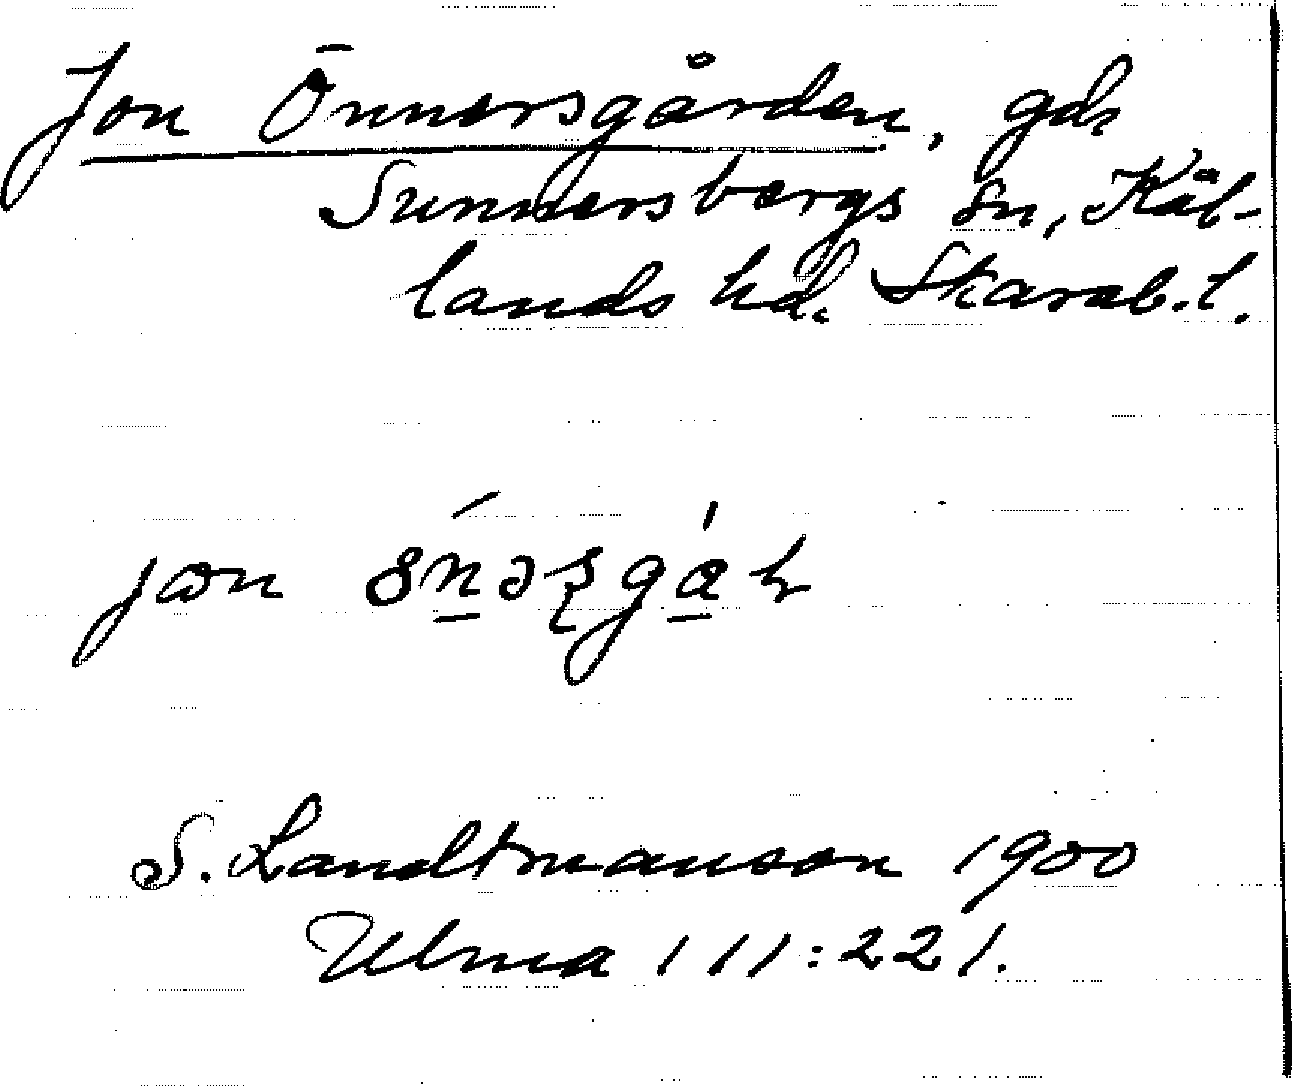 Jon Önnersgården, gds
Sunnersbergs sn, Kål-
lands hd. Skarab. l.
jon
S. Landtmanson 1900
Ulma 111:221.